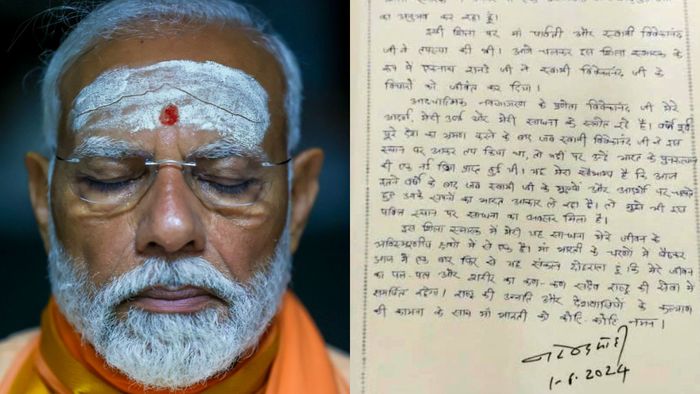 का अनुभव कर रहा हूं।
इसी शिला पर मां पार्वती और स्वामी विवेकानंद
जी ने तपस्या की थी। आगे चलकर इस शिला स्मारक के
रूप में एकनाथ रानडे जी ने स्वामी विवेकानंद जी के
विचारों को जीवंत कर दिया।
आध्यात्मिक नवजागरण के प्रणेता विवेकानंद जी मेरे
आदर्श, मेरी ऊर्जा और मेरी साधना के स्रोत रहे हैं।
पूरे देश का भ्रमण करने के बाद जब स्वामी विवेकानंद जी ने इस
स्थान पर आकर तप किया था, तो यहीं पर उन्हें भारत के पुनरुत्थान
की एक नई दिशा प्राप्त हुई थी। यह मेरा सौभाग्य है कि आज
इतने वर्षों के बाद जब स्वामी जी के मूल्यों और आदर्शों पर चलते
हुए उनके सपनों का भारत आकार ले रहा है। तो मुझे भी इस
पवित्र स्थान पर साधना का अवसर मिला है।
इस शिला स्मारक में मेरी यह साधना मेरे जीवन के
अविस्मरणीय क्षणों में से एक है। मां भारती के चरणों में बैठकर
आज मैं एक बार फिर से यह संकल्प दोहराता हूं कि मेरे जीवन
का पल-पल और शरीर का कण-कण सदैव राष्ट्र की सेवा में
समर्पित रहेगा। राष्ट्र की उन्नति और देशवासियों के कल्याण
की कामना के साथ मां भारती को कोटि-कोटि नमन।
नरेन्द्र मोदी
1-6-2024